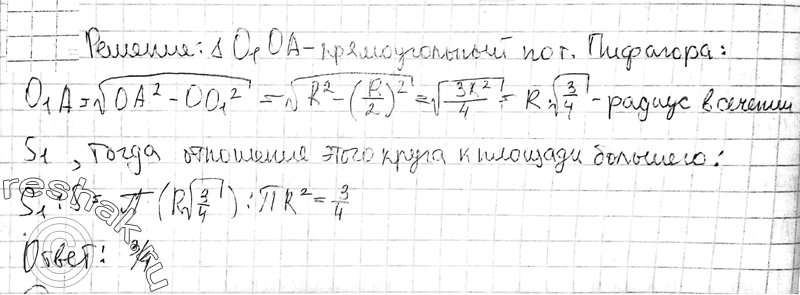 Решение: Δ O₁OA - прямоугольный по т. Пифагора:
O₁A = √(OA² - OO₁²) = √(R² - (R/2)²) = √(3R²/4) = R√(3/4) - радиус в сечении
S₁, тогда отношение этого круга к площади большего:
S₁ : S = π (R√(3/4)) : πR² = 3/4
Ответ: 3/4
reshak.ru